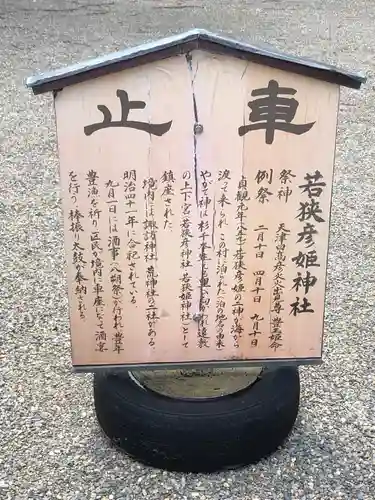 車止
若狭彦姫神社
祭神 天津日高彦火火出見尊 豊玉姫命
例祭 二月十日 四月十日 九月十日
貞観元年(八五九)若狭彦姫の二神が海から
渡って来られこの村に泊られた(泊の地名の由来)
やがて神は
の上下宮(若狭彦神社 若狭姫神社)として
鎮座された
境内には諏訪神社 荒神社の二社がある
明治四十一年に合祀されている
九月一日には酒事(八朔祭)が行われ豊年
豊漁を祈り区民が境内に車座になって酒宴
を行う 棒振り太鼓が奉納された